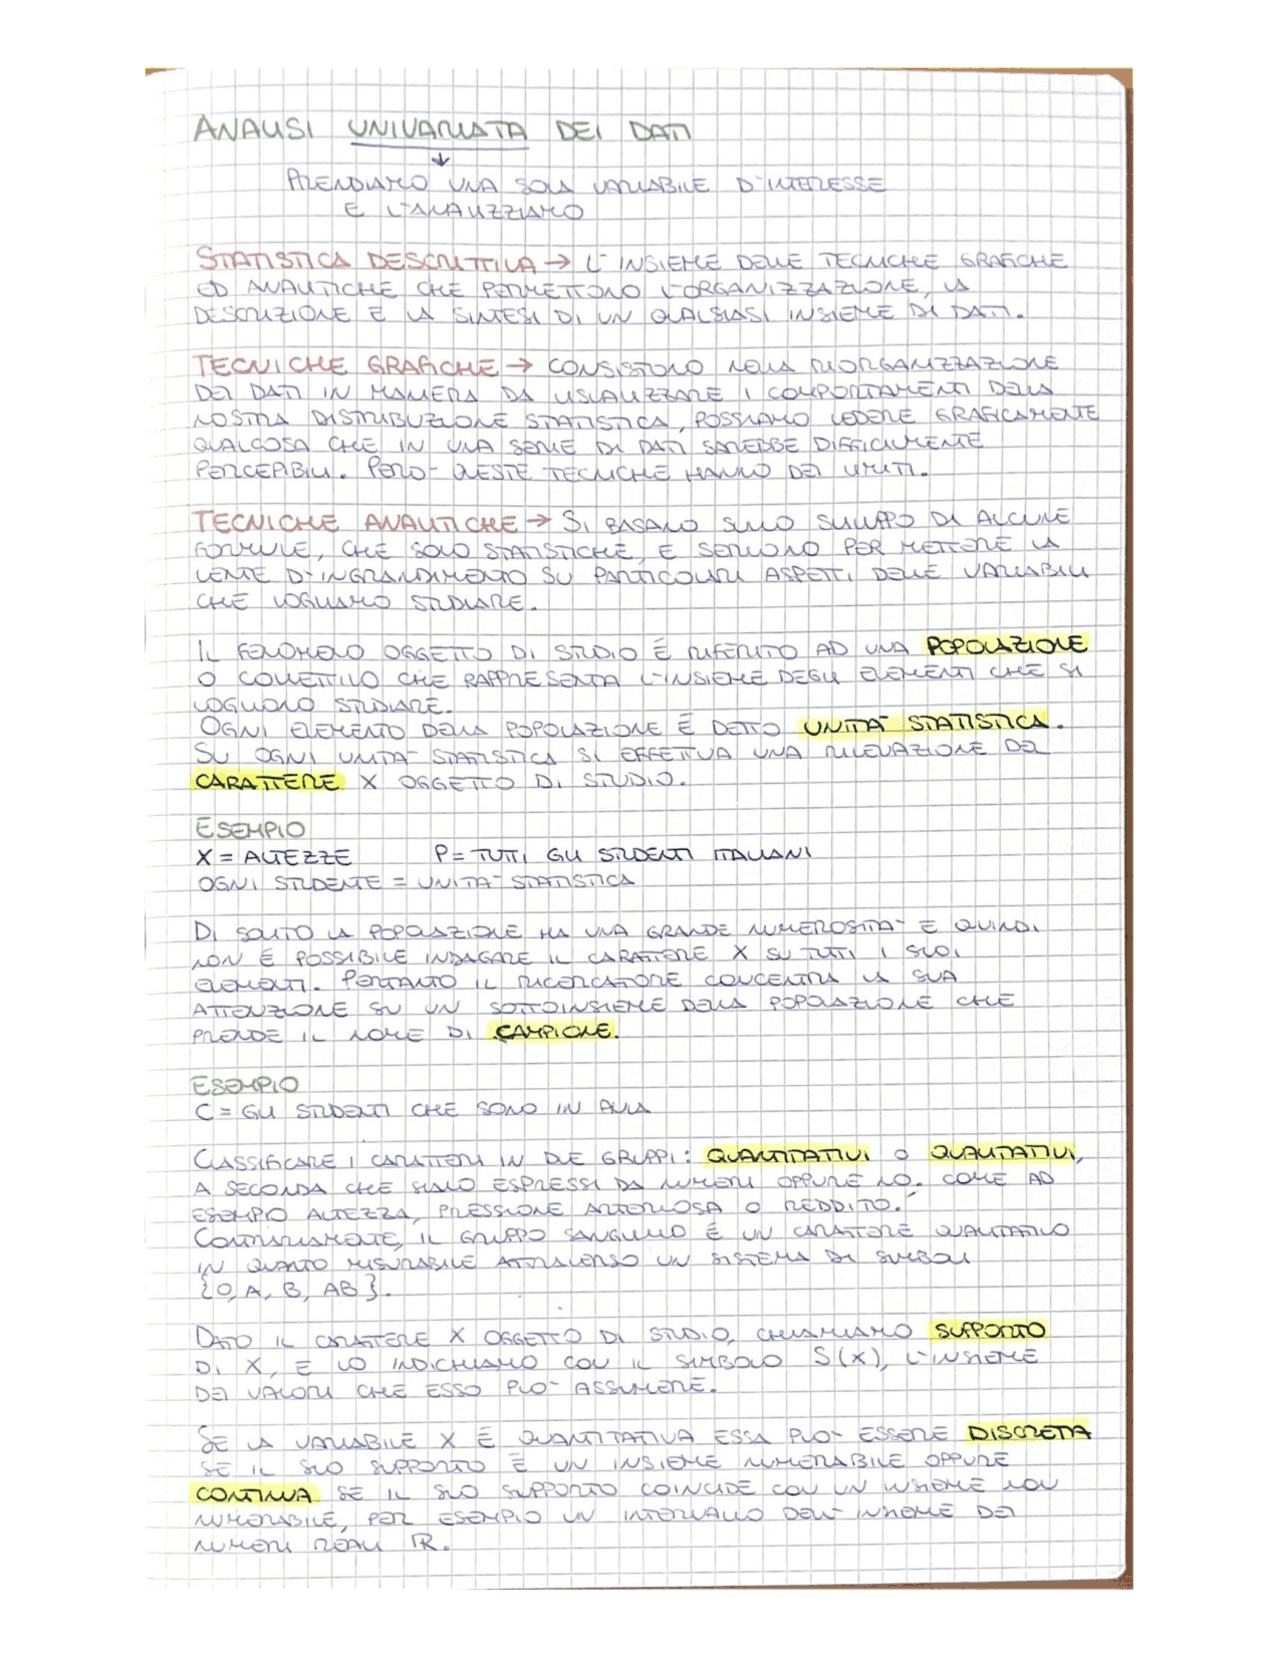 ANALISI UNIVARIATA DEI DATI
PRENDIAMO UNA SOLA VARIABILE D'INTERESSE
E L'ANALIZZIAMO
STATISTICA DESCRITTIVA → L'INSIEME DELLE TECNICHE GRAFICHE
ED ANALITICHE CHE PERMETTONO L'ORGANIZZAZIONE, LA
DESCRIZIONE E LA SINTESI DI UN QUALSIASI INSIEME DI DATI.
TECNICHE GRAFICHE → CONSISTONO NELLA RIORGANIZZAZIONE
DEI DATI IN MANIERA DA VISUALIZZARE I COMPORTAMENTI DELLA
NOSTRA DISTRIBUZIONE STATISTICA, POSSIAMO VEDERE GRAFICAMENTE
QUALCOSA CHE IN UNA SERIE DI DATI SAREBBE DIFFICILMENTE
PERCEPIBILI. PERO' QUESTE TECNICHE HANNO DEI LIMITI.
TECNICHE ANALITICHE → SI BASANO SULLO SVILUPPO DI ALCUNE
FORMULE, CHE SONO STATISTICHE, E SERVONO PER METTERE LA
LENTE D'INGRANDIMENTO SU PARTICOLARI ASPETTI DELLE VARIABILI
CHE VOGLIAMO STUDIARE.
IL FENOMENO OGGETTO DI STUDIO É RIFERITO AD UNA POPOLAZIONE
O COLLETTIVO CHE RAPPRESENTA L'INSIEME DEGLI ELEMENTI CHE SI
VOGLIONO STUDIARE.
OGNI ELEMENTO DELLA POPOLAZIONE É DETTO UNITA' STATISTICA.
SU OGNI UNITA' STATISTICA SI EFFETTUA UNA RILEVAZIONE DEL
CARATTERE X OGGETTO DI STUDIO.
ESEMPIO
X = ALTEZZE P = TUTTI GLI STUDENTI ITALIANI
OGNI STUDENTE = UNITA' STATISTICA
DI SOLITO LA POPOLAZIONE HA UNA GRANDE NUMEROSITA' E QUINDI
NON É POSSIBILE INDAGARE IL CARATTERE X SU TUTTI I SUOI
ELEMENTI. PERTANTO IL RICERCATORE CONCENTRA LA SUA
ATTENZIONE SU UN SOTTOINSIEME DELLA POPOLAZIONE CHE
PRENDE IL NOME DI CAMPIONE.
ESEMPIO
C = GLI STUDENTI CHE SONO IN AULA
CLASSIFICARE I CARATTERI IN DUE GRUPPI: QUANTITATIVI O QUALITATIVI,
A SECONDA CHE SIANO ESPRESSI DA NUMERI OPPURE NO. COME AD
ESEMPIO ALTEZZA, PRESSIONE ARTERIOSA O REDDITO.
CONTRARIAMENTE, IL GRUPPO SANGUIGNO É UN CARATTERE QUALITATIVO
IN QUANTO MISURABILE ATTRAVERSO UN SISTEMA DI SIMBOLI
{0, A, B, AB}.
DATO IL CARATTERE X OGGETTO DI STUDIO, CHIAMIAMO SUPPORTO
DI X, E LO INDICHIAMO CON IL SIMBOLO S(X), L'INSIEME
DEI VALORI CHE ESSO PUO' ASSUMERE.
SE LA VARIABILE X É QUANTITATIVA ESSA PUO' ESSERE DISCRETA
SE IL SUO SUPPORTO É UN INSIEME NUMERABILE OPPURE
CONTINUA SE IL SUO SUPPORTO COINCIDE CON UN INSIEME NON
NUMERABILE, PER ESEMPIO UN INTERVALLO DELL' INSIEME DEI
NUMERI REALI ℝ.